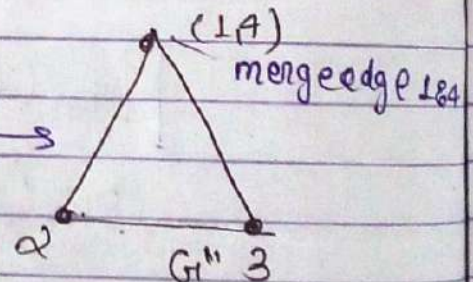 (1,4)
merge edge 1&4
2
G" 3